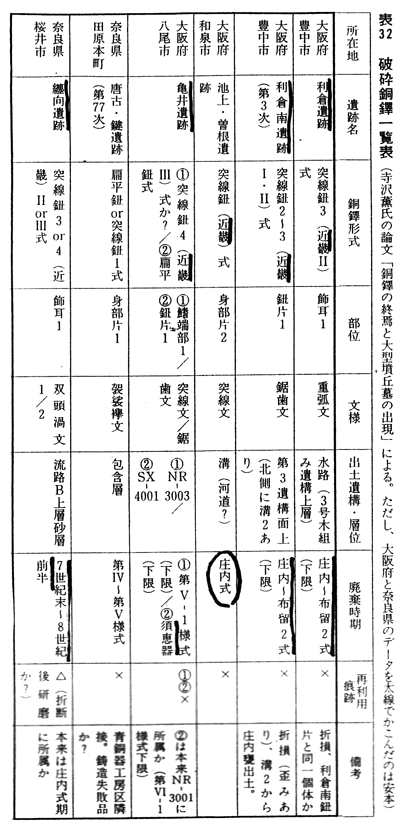 表32 破砕銅鐸一覧表（寺沢薫氏の論文「銅鐸の終焉と大型墳丘墓の出現」による。ただし、大阪府と奈良県のデータを太線でかこんだのは安本）
所在地
遺跡名
銅鐸形式
部位
文様
出土遺構・層位
廃棄時期
再利用
痕跡
備考
大阪府
豊中市
利倉遺跡
突線鈕3（近畿II）
式
飾耳1
重弧文
水路（3号木組
み遺構上層）
庄内〜布留2式
（下限）
×
折損、利倉南鈕
片と同一個体か
大阪府
豊中市
利倉南遺跡
（第3次）
突線鈕2〜3（近畿
I・II）式
鈕片1
鋸歯文
第3遺構面上
（北側に溝2あ
り）
庄内〜布留2式
（下限）
×
折損（歪みあ
り）、溝2から
庄内甕出土。
大阪府
和泉市
池上・曽根遺
跡
突線鈕（近畿）式
身部片2
突線文
溝（河道？）
庄内式
×
大阪府
八尾市
亀井遺跡
①突線鈕4（近畿
III）式か？/②扁平
鈕式
①鰭端部1/
②鈕片1
突線文/鋸
歯文
①NR-3003/
②SX-4001
①第V-1様式
（下限）/②須恵器
（下限）
①②×
②は本来NR-3001に
所属か（第VI-1
様式下限）
奈良県
田原本町
唐古・鍵遺跡
（第77次）
扁平鈕or突線鈕1式
身部片1
袈裟襷文
包含層
第IV〜第V様式
×
青銅器工房区隣
接。鋳造失敗品
か？
奈良県
桜井市
纏向遺跡
突線鈕3or4（近
畿）IIorIII式
飾耳1
双頭渦文
1/2
流路B上層砂層
7世紀末〜8世紀
前半
△（折断
後研磨
か？）
本来は庄内式期
に所属か